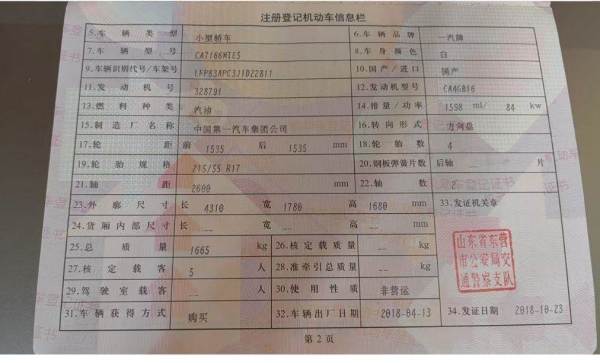 注册登记机动车信息栏
5.车辆类型 小型轿车 6.车辆品牌 一汽牌
7.车辆型号 CA7166MTE5 8.车身颜色 白
9.车辆识别代号/车架号 LFP83APC3J1D22811 10.国产/进口 国产
11.发动机号 328791 12.发动机型号 CA4GB16
13.燃料种类 汽油 14.排量/功率 1598 ml/ 84 kw
15.制造厂名称 中国第一汽车集团公司 16.转向形式 方向盘
17.轮距 前 1535 后 1535 mm 18.轮胎数 4
19.轮胎规格 215/55 R17 20.钢板弹簧片数 后轴 -- 片
21.轴距 2600 mm 22.轴数 2
23.外廓尺寸 长 4310 宽 1780 高 1680 mm 33.发证机关章
24.货厢内部尺寸 长 -- 宽 -- 高 -- mm
25.总质量 1665 kg 26.核定载质量 -- kg
27.核定载客 5 人 28.准牵引总质量 -- kg
29.驾驶室载客 -- 人 30.使用性质 非营运
山东省东营
市公安局交
通警察支队
31.车辆获得方式 购买 32.车辆出厂日期 2018-04-13 34.发证日期 2018-10-23
第2页